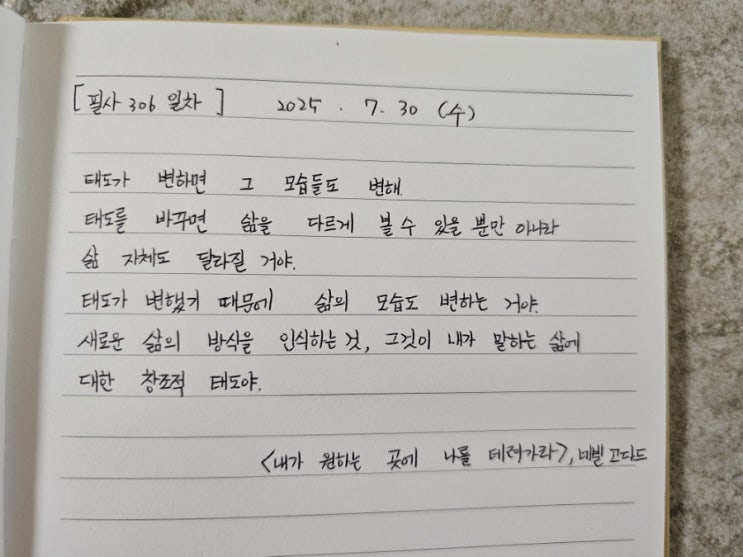 [필사 306 일차]    2025. 7. 30 (수)
태도가 변하면 그 모습들도 변해.
태도를 바꾸면 삶을 다르게 볼 수 있을 뿐만 아니라
삶 자체도 달라질 거야.
태도가 변했기 때문에 삶의 모습도 변하는 거야.
새로운 삶의 방식을 인식하는 것, 그것이 내가 말하는 삶에
대한 창조적 태도야.
<내가 원하는 곳에 나를 데려가라>, 네빌 고다드